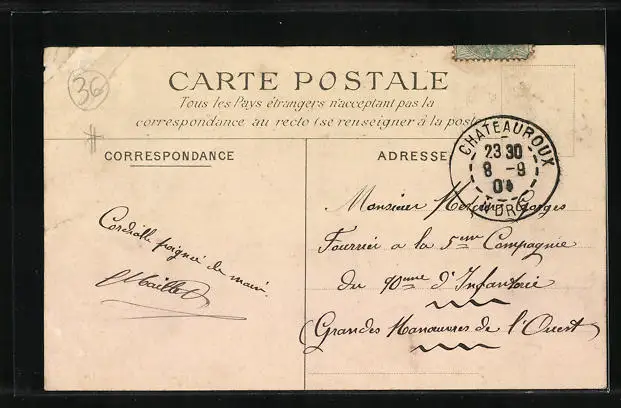 36
CARTE POSTALE
Tous les Pays étrangers n'acceptant pas la
correspondance au recto (se renseigner à la poste
CORRESPONDANCE
ADRESSE
CHATEAUROUX
23 30
8 - 9
04
INDRE
Cordialle poignée de main.
Maillet
Monsieur Mercier Georges
Fourrier a la 5eme Compagnie
du 90eme d'Infanterie
(Grandes Manœuvres de l'Ouest)